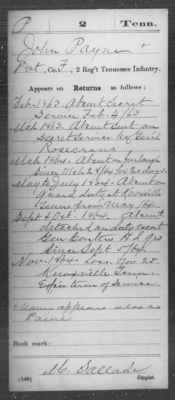 P 2 Tenn.
John Payne +
Pvt, Co. F, 2 Reg't Tennessee Infantry.
Appears on Returns as follows:
Feb. 1863. Absent Secret
Service Feb. 4/63
Mch 1863. Absent Sent on
Secret Service by Genl
Rosecrans
Mch 1864. Absent on furlough
Since Mch 24/64 for 30 days
May to July 1864. Absent on
Guard duty at Knoxville
Tenn. from May /64
Sept & Oct. 1864. Absent
detached on duty escort
Gen Carters Hd. Qrs
Since Sept 1/64
Nov. 1864 Loss. Nov 25
Knoxville Tenn.
Expir. term of service
+ Name appears also as
Paine
Book mark:
(546) Copyist.